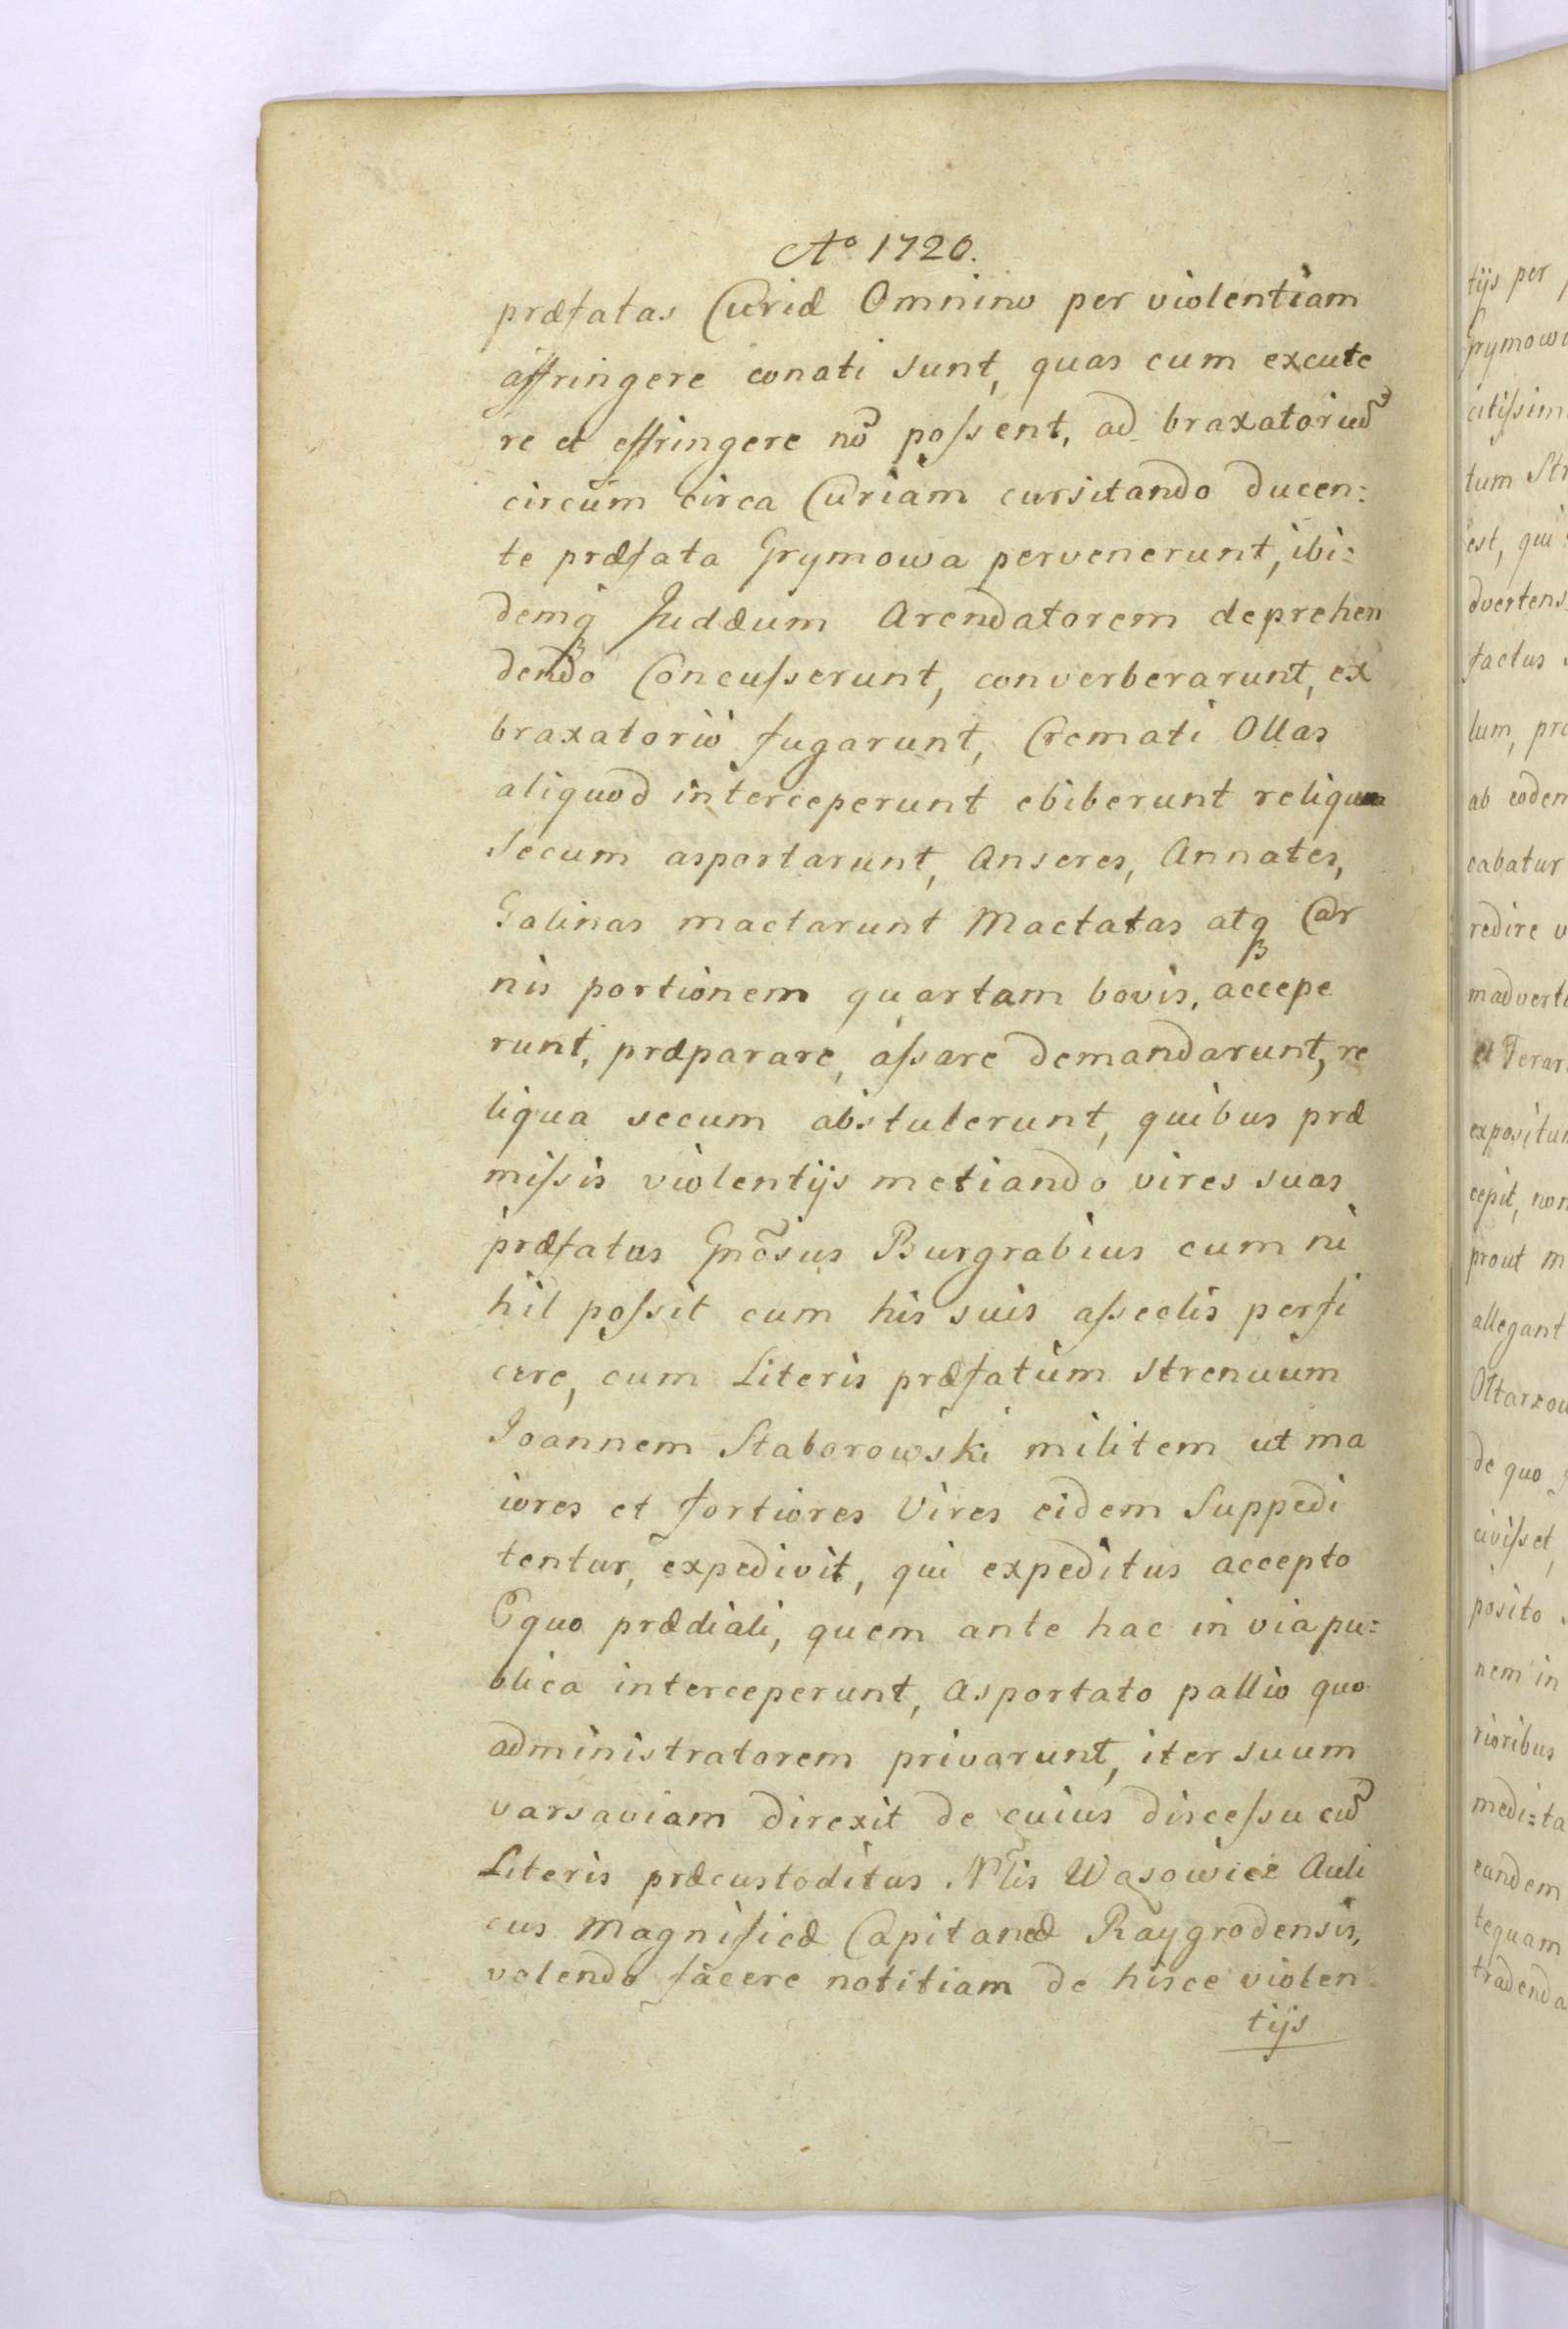 Aº 1720.
præfatas Curiæ Omnino per violentiam
affringere conati sunt, quas cum excute
re et effringere nõ poſsent, ad braxatoriũ
circum circa Curiam cursitando ducen:
te præfata Grymowa pervenerunt, ibi:
demq Judæum Arendatorem deprehen
dendo Concuſserunt, converberarunt, ex
braxatorio fugarunt, Cremati Ollas
aliquod interceperunt ebiberunt reliqua
secum asportarunt, Anseres, Annates,
Galinas mactarunt Mactatas atq Car
nis portionem quartam bovis, accepe
runt, præparare, aſsare demandarunt, re
liqua secum abstulerunt, quibus præ
miſsis violentijs metiando vires suas
præfatus Gnõsus Burgrabius cum ni
hil poſsit cum his suis aſseclis perfi
cere, cum Literis præfatum strenuum
Joannem Staborowski militem ut ma
iores et fortiores Vires eidem Suppedi
tentur, expedivit, qui expeditus accepto
Equo prædiali, quem ante hac in via pu:
blica interceperunt, Asportato pallio quo
administratorem privarunt, iter suum
varsaviam direxit de cuius disceſsu cũ
Literis præcustoditus Nlis Wąsowicz Auli
cus Magnificæ Capitaneæ Raygrodensis,
volendo facere notitiam de hisce violen
tijs
tijs per
Grymowa
citiſsim
tum Str
est, qui
dvertens
factus
lum, præ
ab eodem
cabatur
redire
madverte
et Ferar
expositum
cepit, non
prout m
allegant
Oltarzow
de quo
civiſset,
posito
nem in
rioribus
medi:ta
eandem
tequam
tradenda